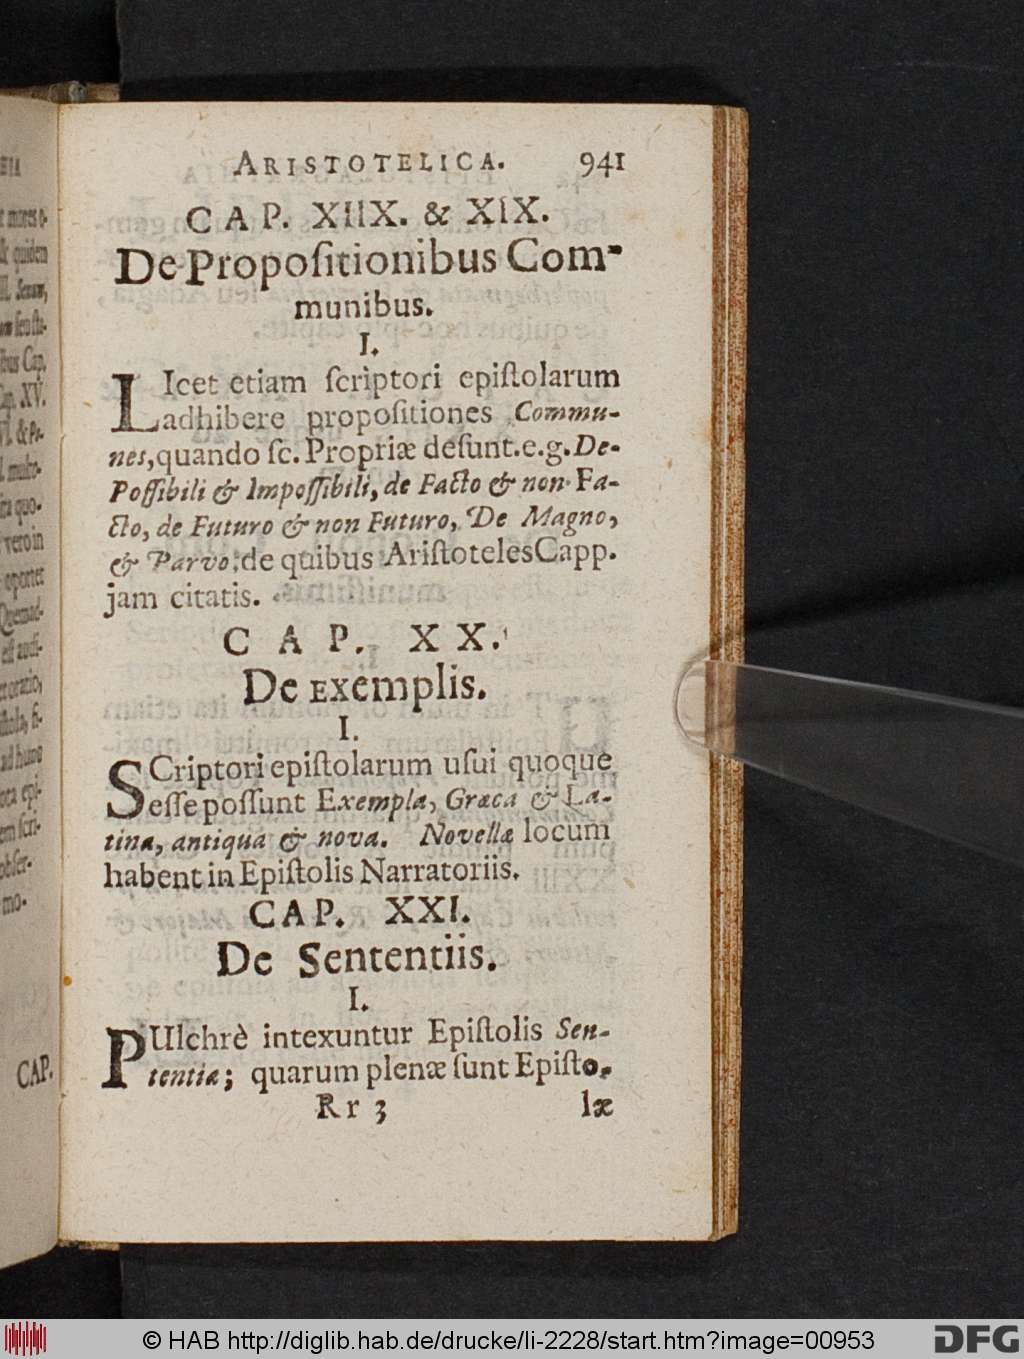 ARISTOTELICA. 941
CAP. XIIX. & XIX.
De Propoſitionibus Com-
munibus.
I.
LIcet etiam ſcriptori epiſtolarum
adhibere propoſitiones Commu-
nes, quando ſc. Propriæ deſunt. e.g. De
Poſſibili & Impoſſibili, de Facto & non Fa-
cto, de Futuro & non Futuro, De Magno,
& Parvo: de quibus Ariſtoteles Capp.
jam citatis.
CAP. XX.
De Exemplis.
I.
SCriptori epiſtolarum uſui quoque
eſſe poſſunt Exempla, Græca & La-
tina, antiqua & nova. Novellæ locum
habent in Epiſtolis Narratoriis.
CAP. XXI.
De Sententiis.
I.
PUlchrè intexuntur Epiſtolis Sen-
tentiæ; quarum plenæ ſunt Epiſto-
Rr 3 læ
CAP.
© HAB http://diglib.hab.de/drucke/li-2228/start.htm?image=00953
DFG